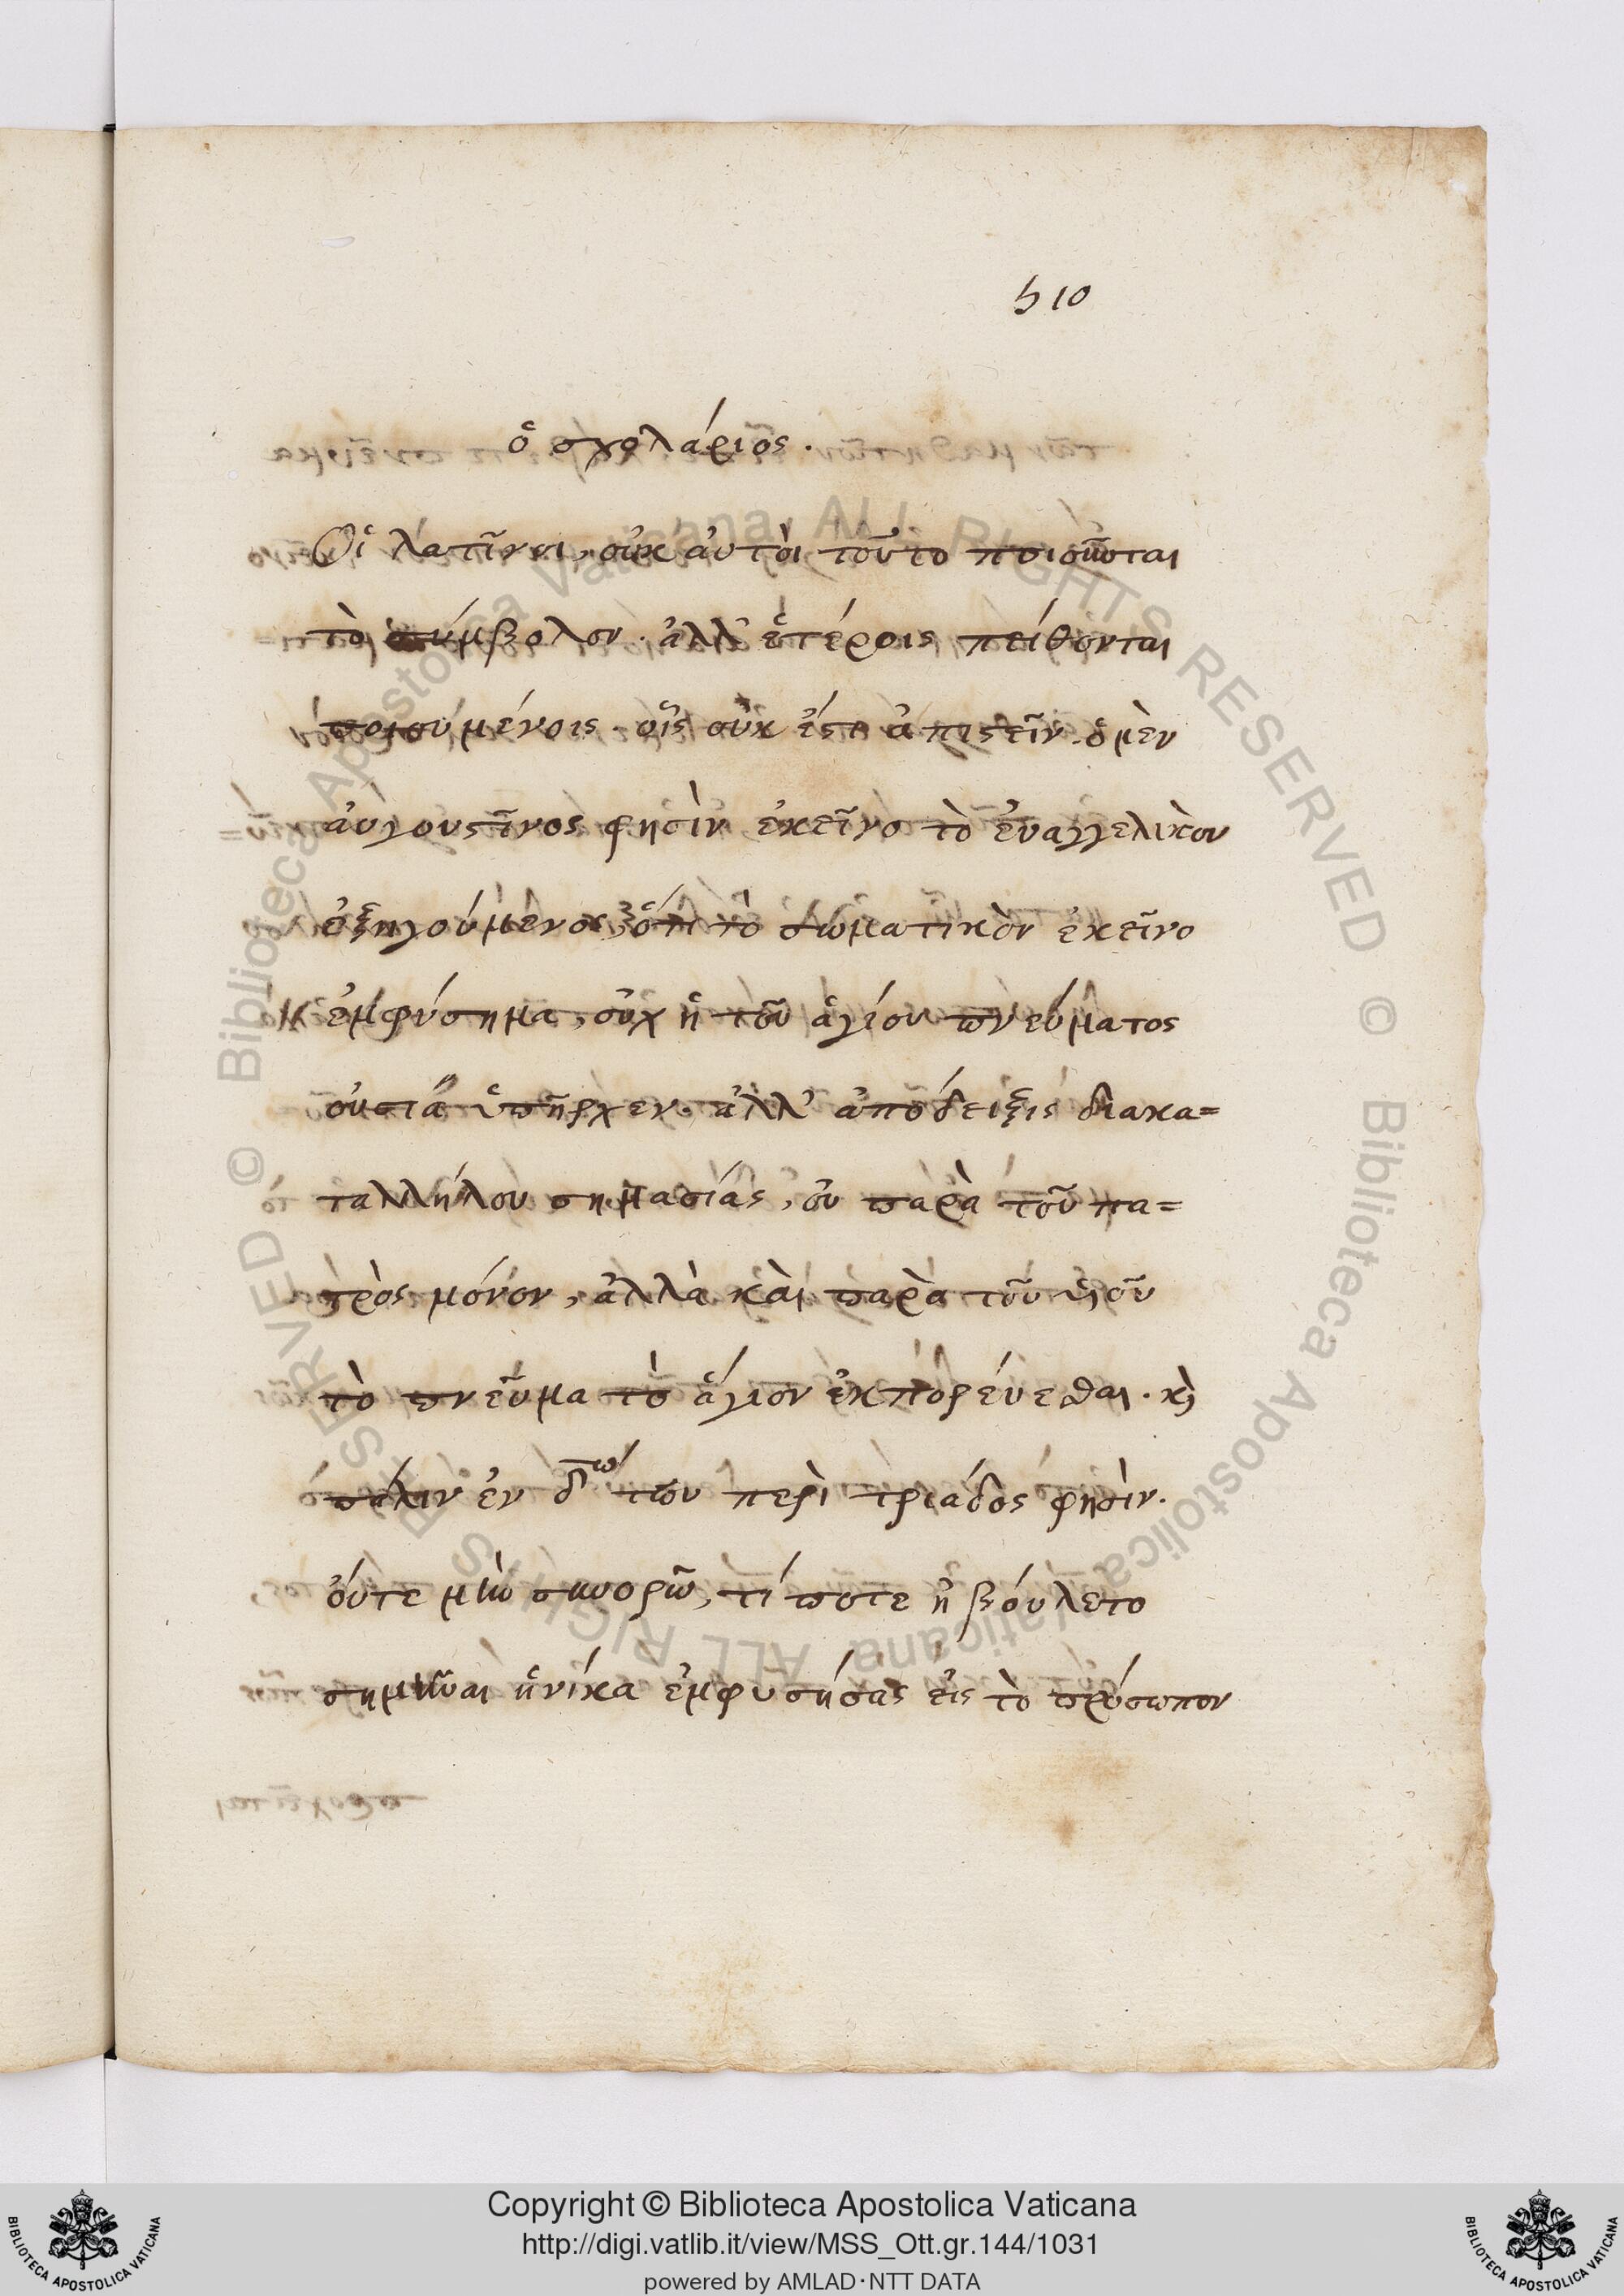 510
ὁ σχολάριος.
Οἱ λατῖνοι, οὐκ ἀυτὸι τοῦτο ποιοῦνται
τὸ σύμβολον. ἀλλ' ἑτέροις πείθονται
ποιουμένοις. οἷς οὐκ ἔστι ἀπιστεῖν. ὁ μὲν
ἀυγουστῖνος φησὶν ἐκεῖνο τὸ ἐυαγγελικὸν
ἐξηγούμενος, ὅτι τὸ σωματικὸν ἐκεῖνο
ἐμφύσημα, οὐχ ἡ τοῦ ἁγίου πνεύματος
οὐσία ὑπῆρχεν. ἀλλ' ἀπόδειξις διακα=
ταλλήλου σημασίας, οὐ παρὰ τοῦ πα=
τρὸς μόνον, ἀλλὰ καὶ παρὰ τοῦ υἱοῦ
τὸ πνεῦμα τὸ ἅγιον ἐκπορέυεσθαι. κὶ
πάλιν ἐν δτω των περὶ τριάδος φησὶν.
ὄυτε μὴν συνορῶ, τί ποτε ἠβόυλετο
σημῆναι ἡνίκα ἐμφυσήσας εἰς τὸ πρόσωπον
Copyright © Biblioteca Apostolica Vaticana
http://digi.vatlib.it/view/MSS_Ott.gr.144/1031
powered by AMLAD·NTT DATA
BIBLIOTECA APOSTOLICA VATICANA
BIBLIOTECA APOSTOLICA VATICANA
© Biblioteca Apostolica Vaticana ALL RIGHTS RESERVED
© Biblioteca Apostolica Vaticana ALL RIGHTS RESERVED